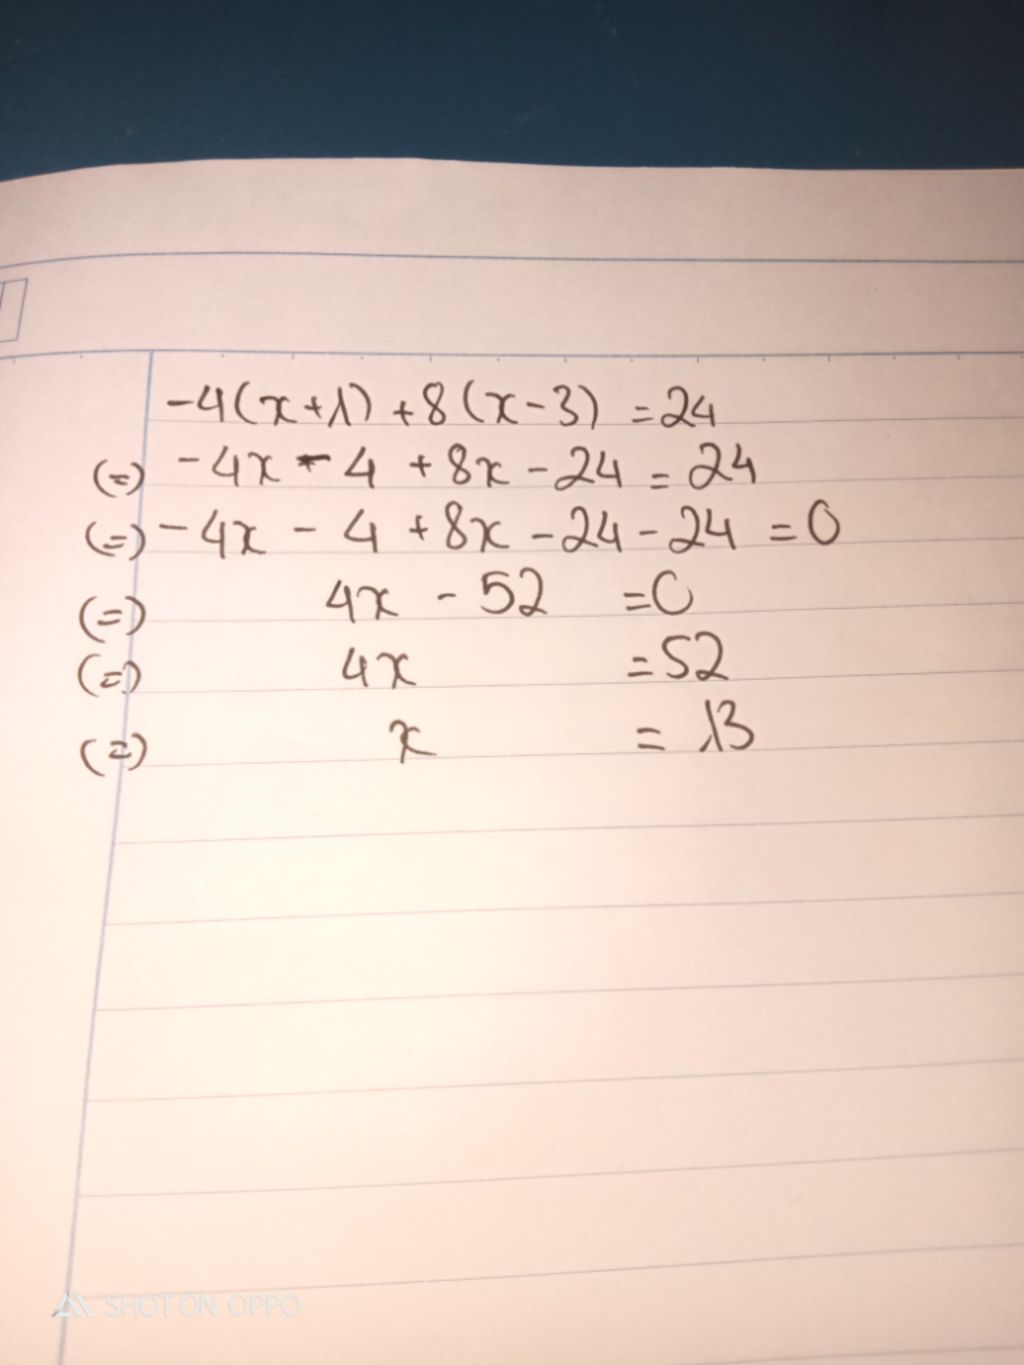 -4(x+1) +8(x-3) =24
(=) -4x - 4 +8x -24 = 24
(=) -4x - 4 +8x -24 -24 =0
(=) 4x - 52 =0
(=) 4x =52
(=) x = 13
SHOT ON OPPO